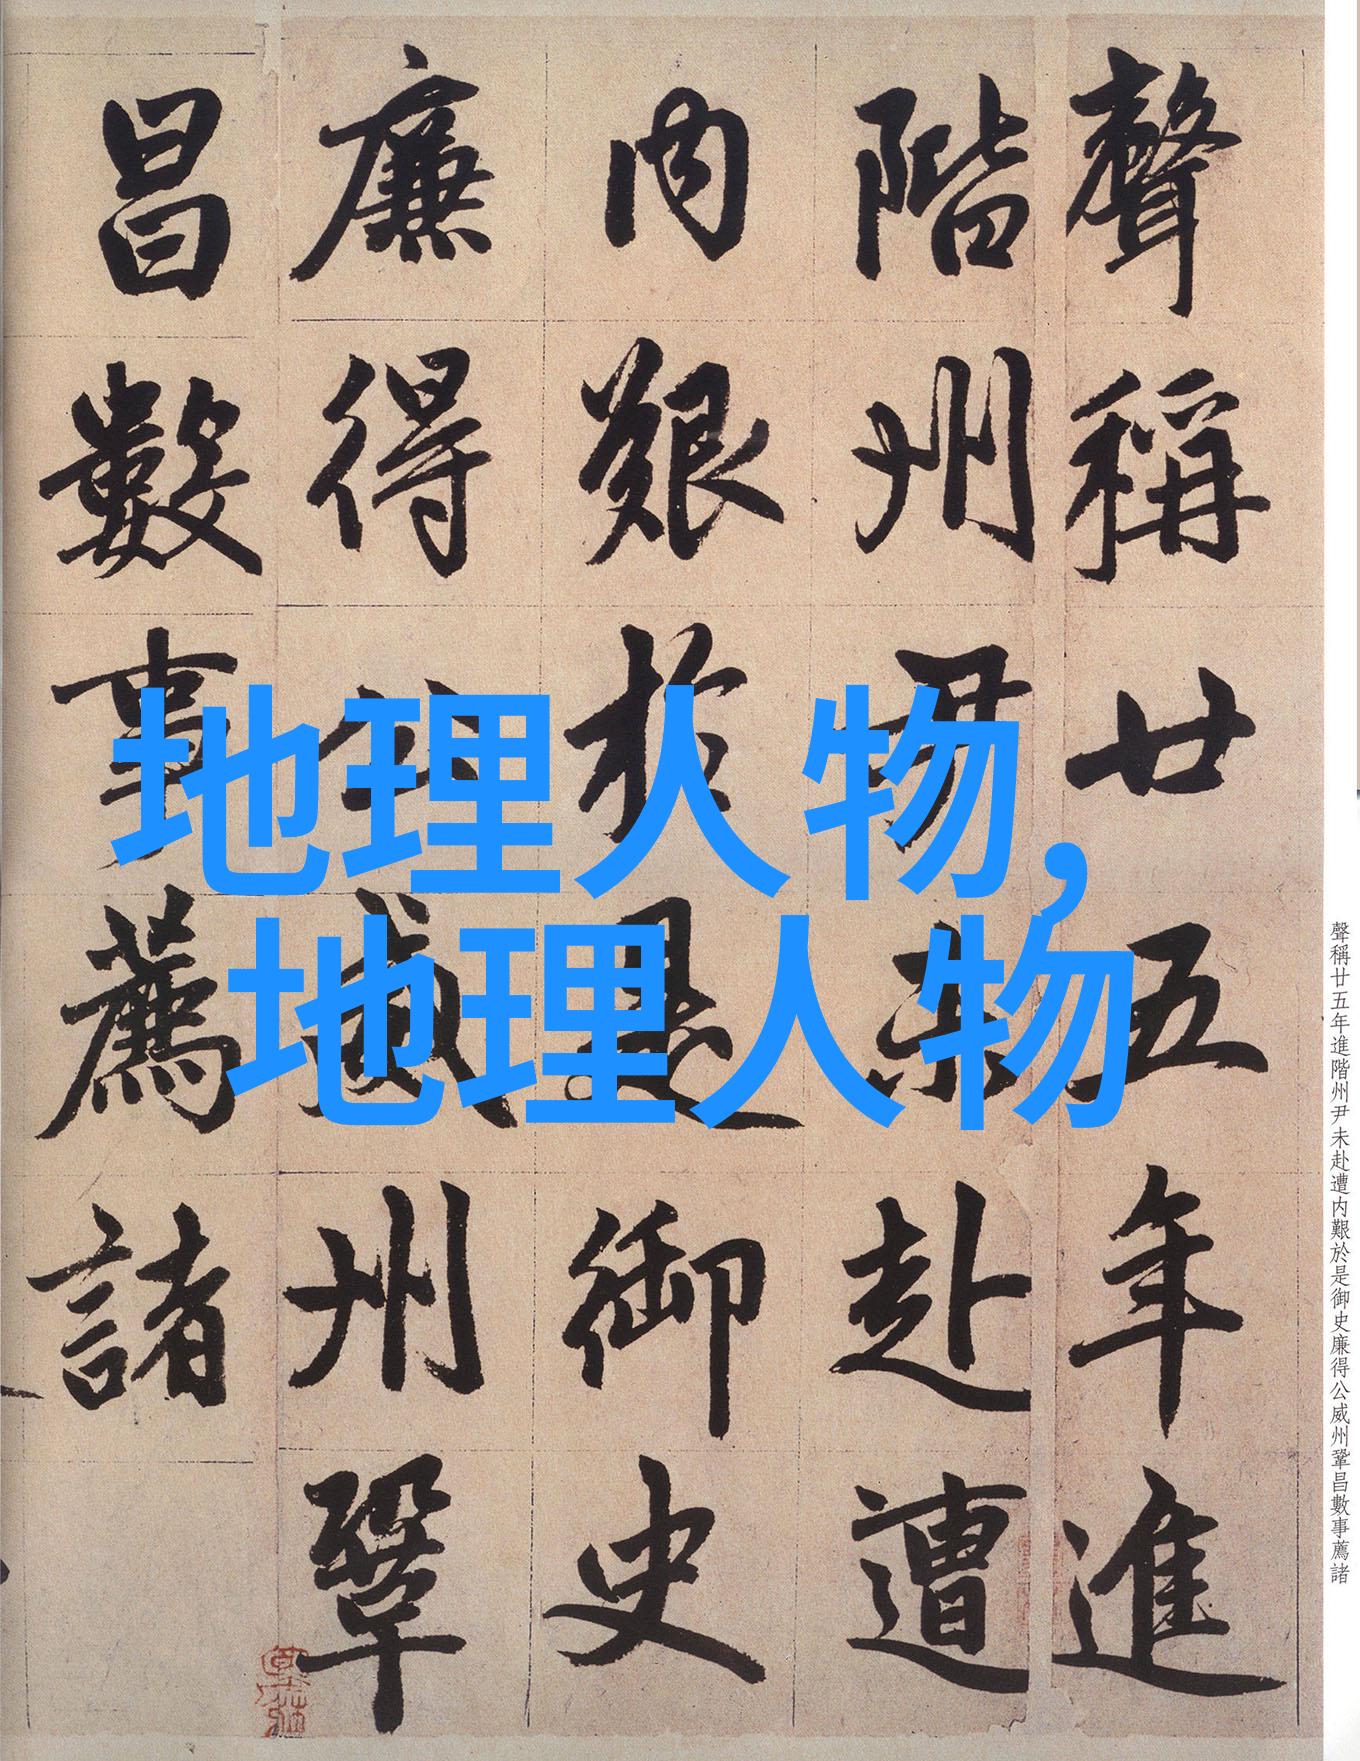 地理人物,
地理人物
聲稱廿五年進
階州尹未赴遭
内艱於是御史
廉得公威州鞏
昌數事薦諸
聲稱廿五年進階州尹未赴遭内艱於是御史廉得公威州鞏昌數事薦諸